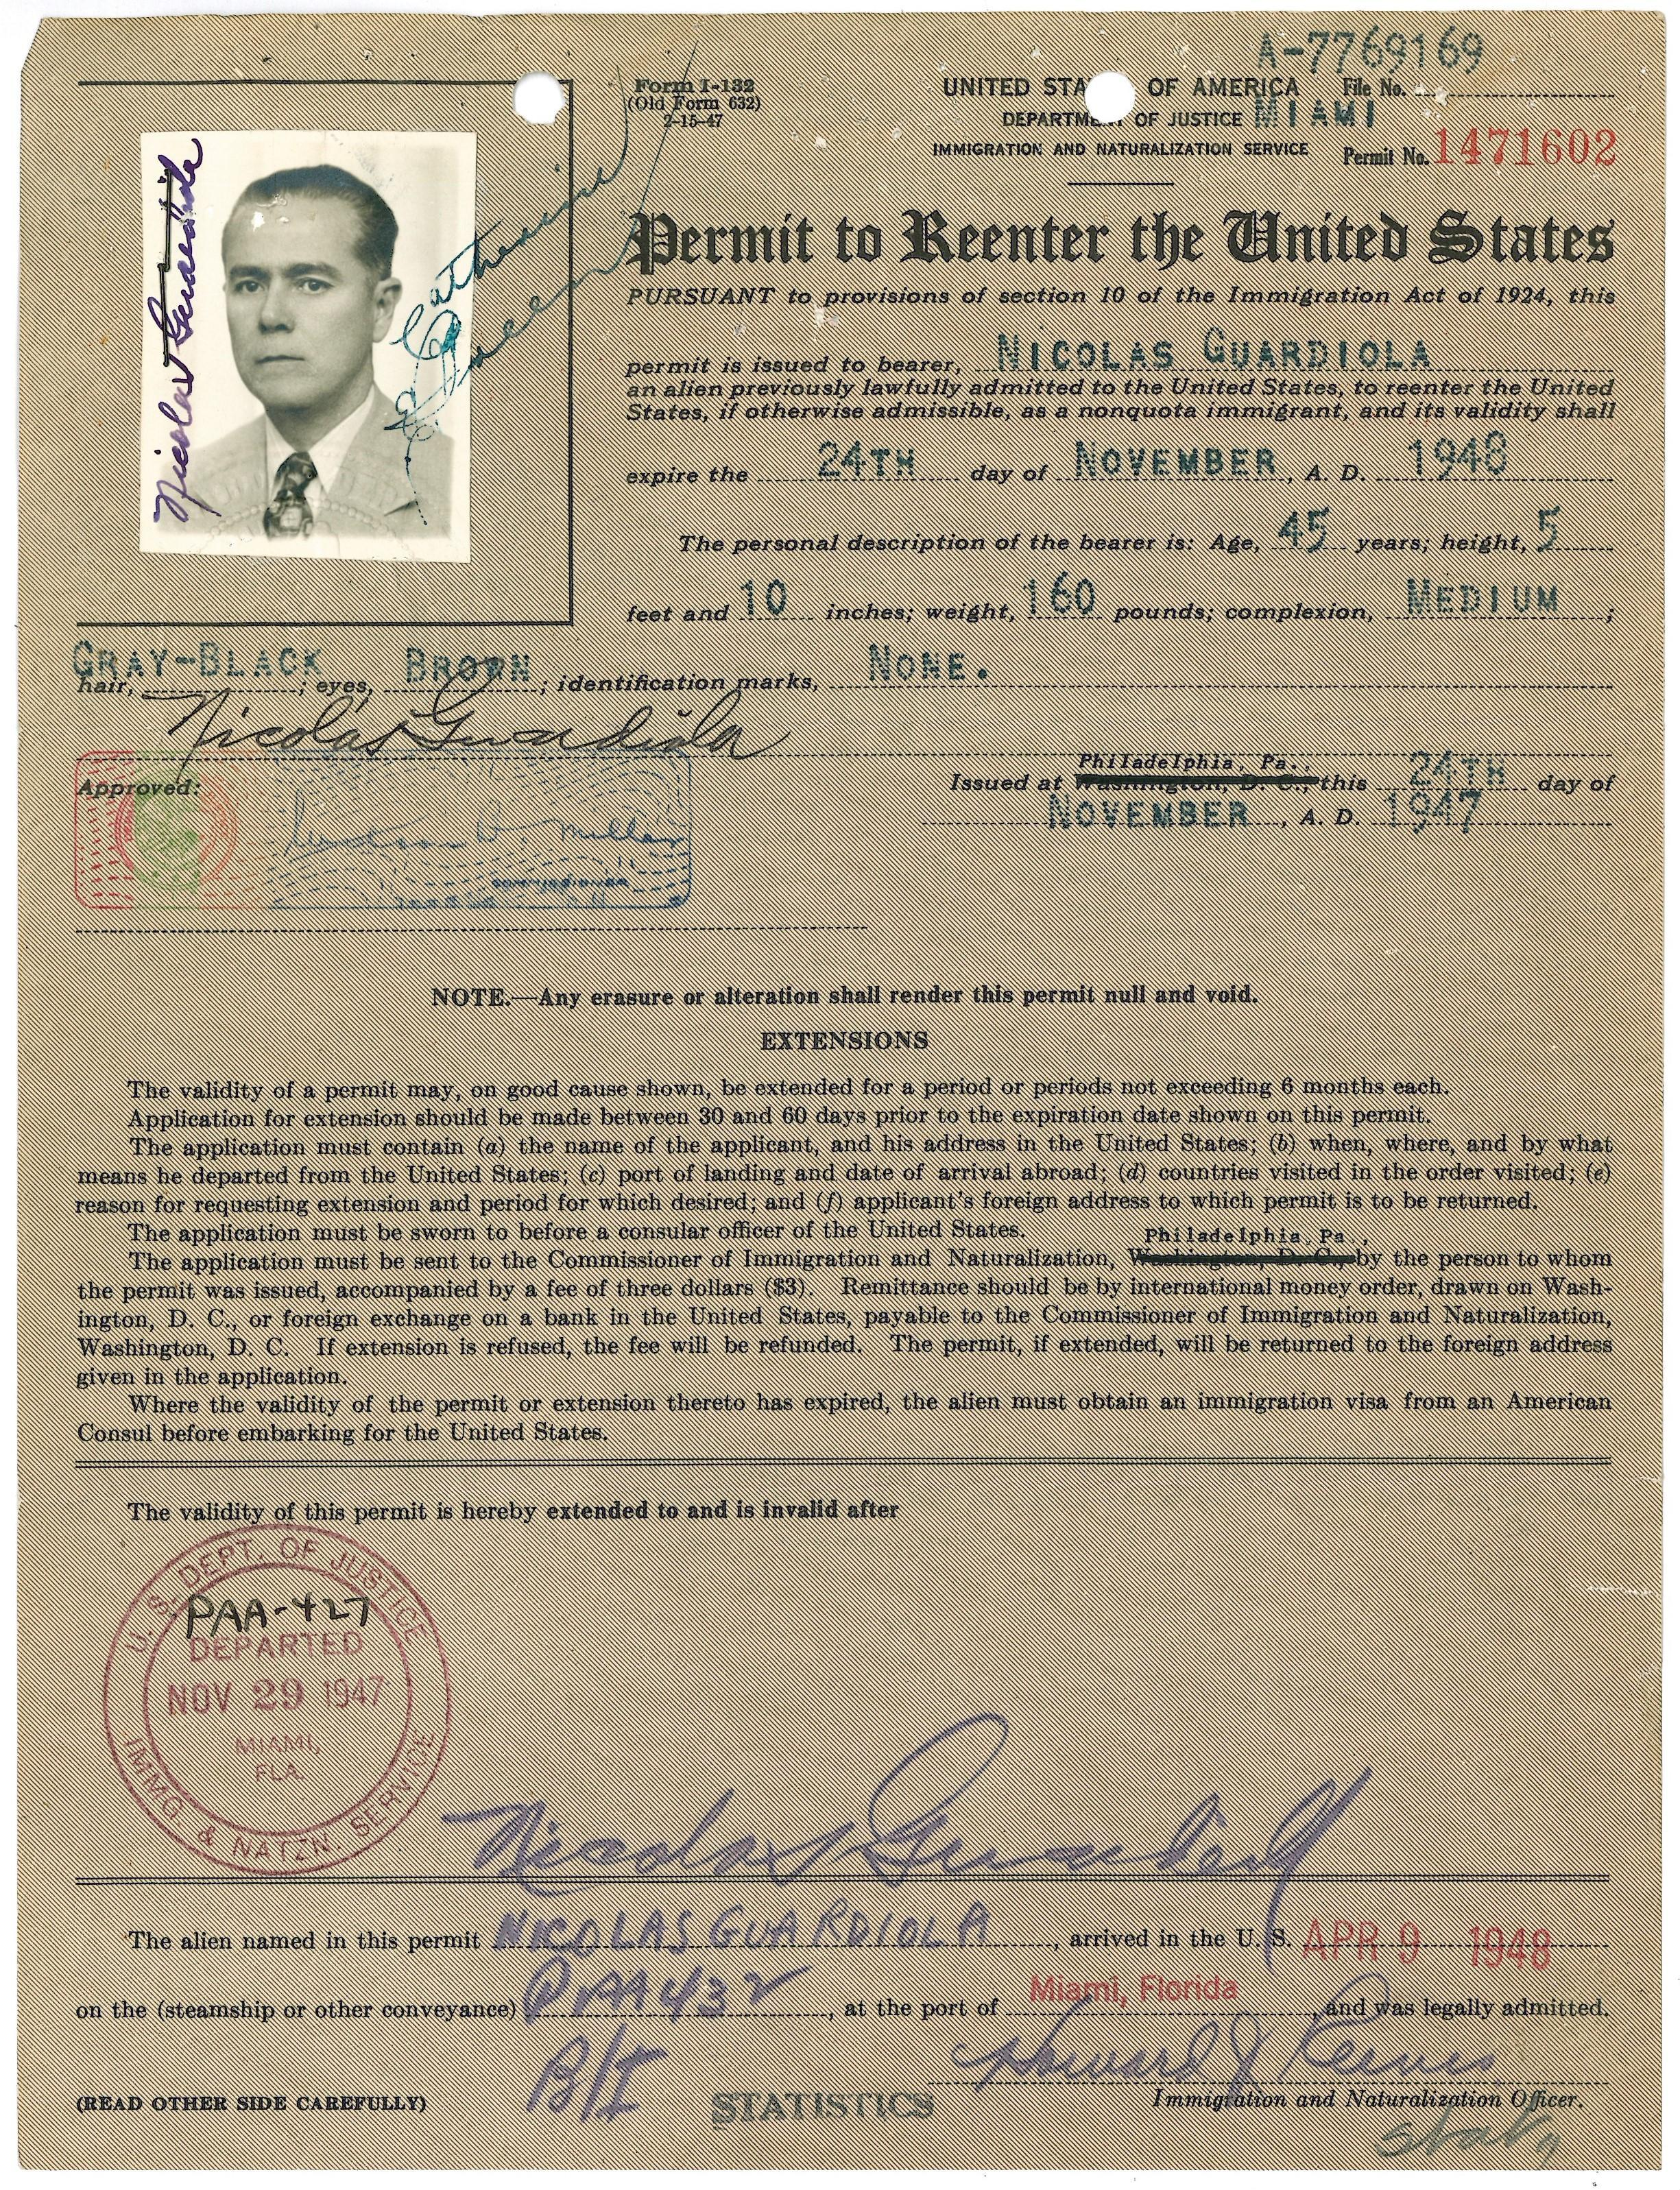 A-7769169
Form I-132
(Old Form 632)
2-15-47
UNITED STA OF AMERICA File No.
DEPARTME OF JUSTICE MIAMI
IMMIGRATION AND NATURALIZATION SERVICE Permit No. 1471602
Nicolas Guardiola
Catherine
Permit to Reenter the United States
PURSUANT to provisions of section 10 of the Immigration Act of 1924, this
permit is issued to bearer, NICOLAS GUARDIOLA
an alien previously lawfully admitted to the United States, to reenter the United
States, if otherwise admissible, as a nonquota immigrant, and its validity shall
expire the 24TH day of NOVEMBER, A. D. 1948
The personal description of the bearer is: Age, 45 years; height, 5
feet and 10 inches; weight, 160 pounds; complexion, MEDIUM;
hair, GRAY-BLACK; eyes, BROWN; identification marks, NONE.
Nicolas Guardiola
Approved:
Miller
COMMISSIONER
Philadelphia, Pa.,
Issued at Washington, D. C., this 24TH day of
NOVEMBER, A. D. 1947
NOTE.—Any erasure or alteration shall render this permit null and void.
EXTENSIONS
The validity of a permit may, on good cause shown, be extended for a period or periods not exceeding 6 months each.
Application for extension should be made between 30 and 60 days prior to the expiration date shown on this permit.
The application must contain (a) the name of the applicant, and his address in the United States; (b) when, where, and by what
means he departed from the United States; (c) port of landing and date of arrival abroad; (d) countries visited in the order visited; (e)
reason for requesting extension and period for which desired; and (f) applicant's foreign address to which permit is to be returned.
The application must be sworn to before a consular officer of the United States.
Philadelphia, Pa.,
The application must be sent to the Commissioner of Immigration and Naturalization, Washington, D. C., by the person to whom
the permit was issued, accompanied by a fee of three dollars ($3). Remittance should be by international money order, drawn on Wash-
ington, D. C., or foreign exchange on a bank in the United States, payable to the Commissioner of Immigration and Naturalization,
Washington, D. C. If extension is refused, the fee will be refunded. The permit, if extended, will be returned to the foreign address
given in the application.
Where the validity of the permit or extension thereto has expired, the alien must obtain an immigration visa from an American
Consul before embarking for the United States.
The validity of this permit is hereby extended to and is invalid after
U. S. DEPT. OF JUSTICE
PAA-427
DEPARTED
NOV 29 1947
MIAMI,
FLA.
IMMG. & NATZN. SERVICE
Nicolas Guardiola
The alien named in this permit NICOLAS GUARDIOLA, arrived in the U. S. APR 9 1948
on the (steamship or other conveyance) PAA 432, at the port of Miami, Florida, and was legally admitted.
B/I
Howard J Reeves
(READ OTHER SIDE CAREFULLY) STATISTICS Immigration and Naturalization Officer.